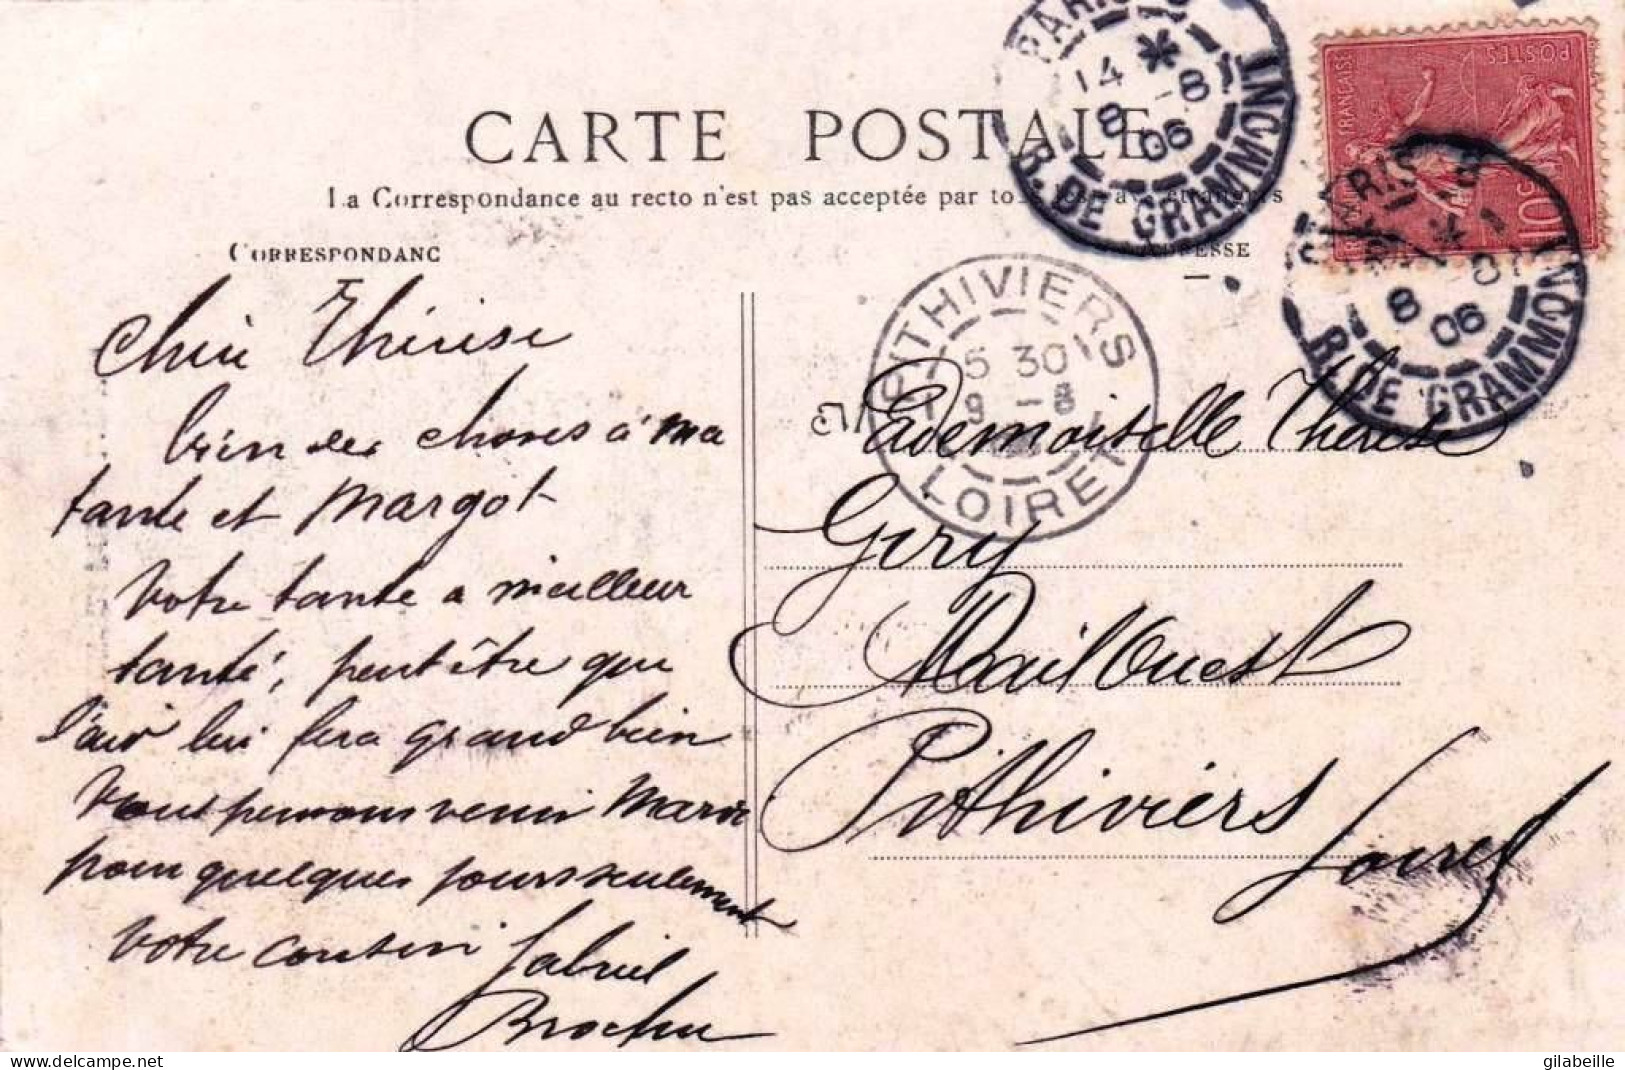 CARTE POSTALE
La Correspondance au recto n'est pas acceptée par tous les pays étrangers
CORRESPONDANC
ADRESSE
Chère Thérèse
bien des choses à ma
tante et Margot
Votre tante a meilleur
santé, peut être que
l'air lui fera grand bien
Vous pouvons venir
pour quelques jours seulement
Votre cousin Gabriel
Brochu
Mademoiselle Thérèse
Gery
Mail Ouest
Pithiviers
Loiret
PARIS 18
14 * 8
8 06
R. DE GRAMMONT
PARIS 18
8 06
R. DE GRAMMONT
PITHIVIERS
5 30
9 - 8
LOIRET
POSTES
FRANÇAISE
10c
delcampe.net
gilabeille